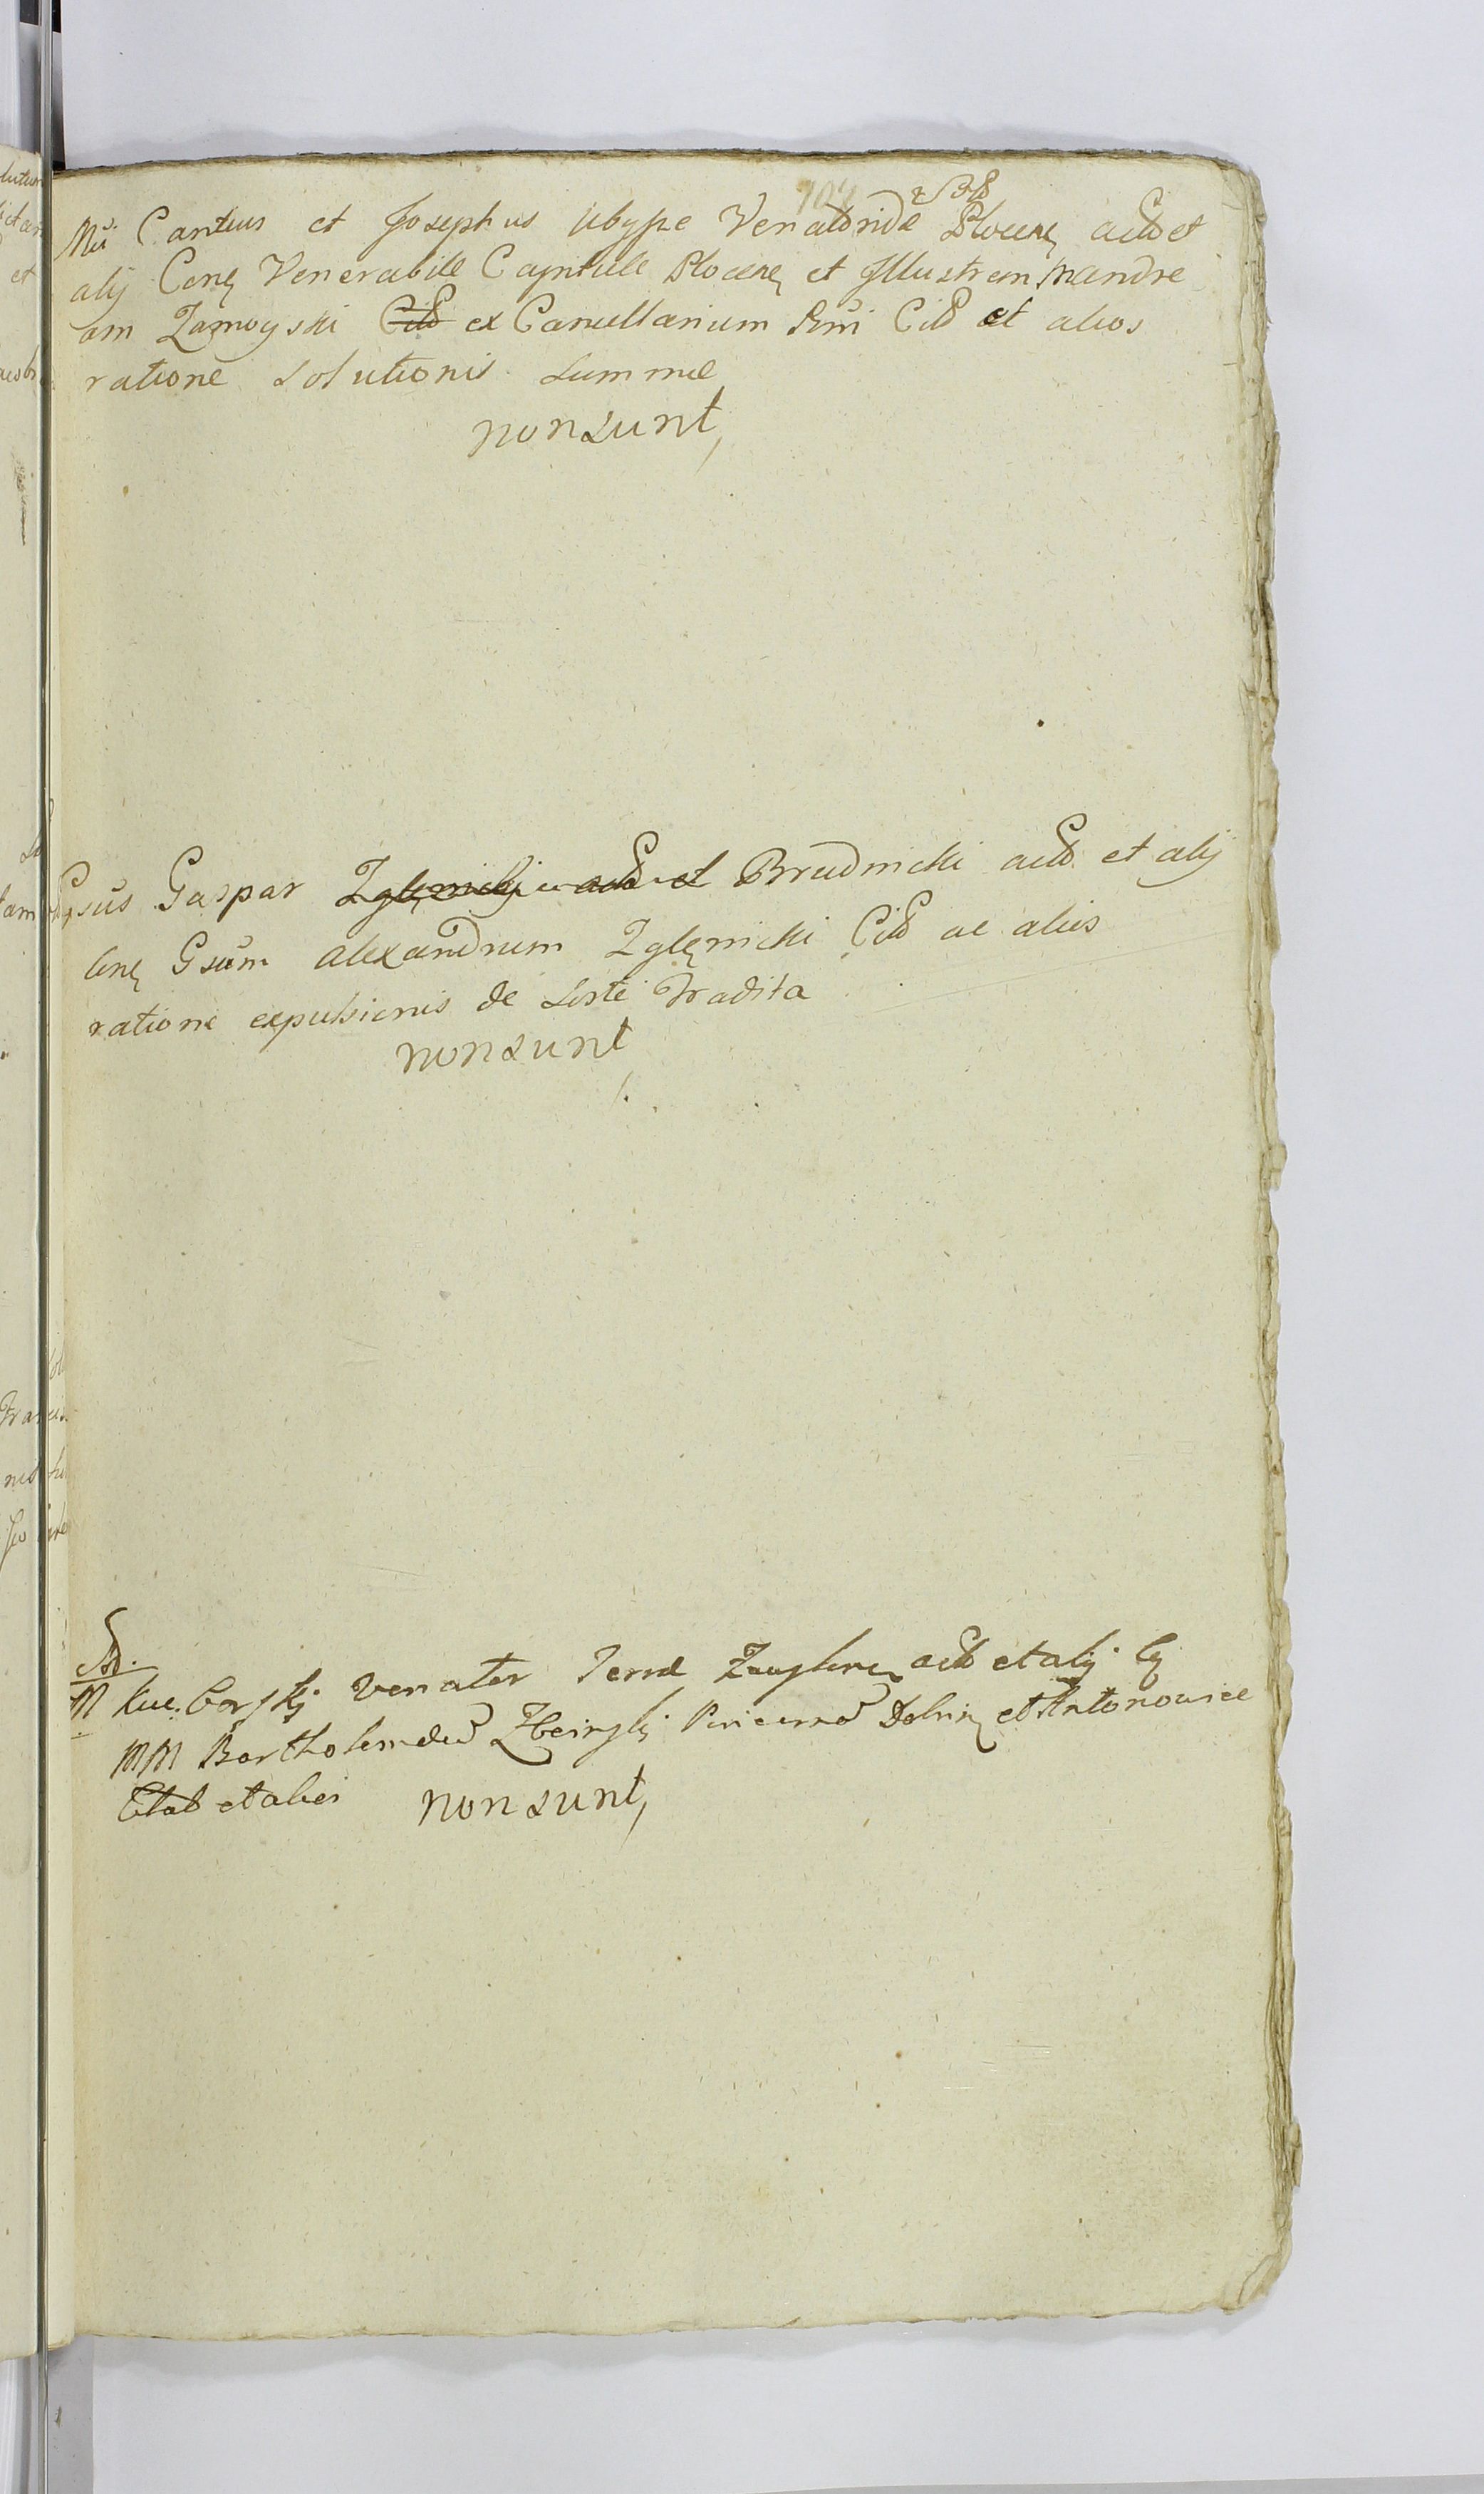 Mci Cantius et Josephus Ubysze Venatoridae Plocen actt et
alij Con Venerabile Capitule Plocen et Illustrem Mandre
am Zamoyski Citt ex Cancellarium Rni Citt et alios
ratione solutionis summae
non sunt
Gsus Gaspar Zglenicki actt et Brudnicki actt et alij
Con Gsum Alexandrum Zglenicki Citt ac alios
ratione expulsionis de sorte tradita
non sunt
M Kuc. borskj Venator Terrae Zawskren actt et alij C
MM Bartholomaeu Pincerna Dobrin et Antonowice
Citat et alios non sunt